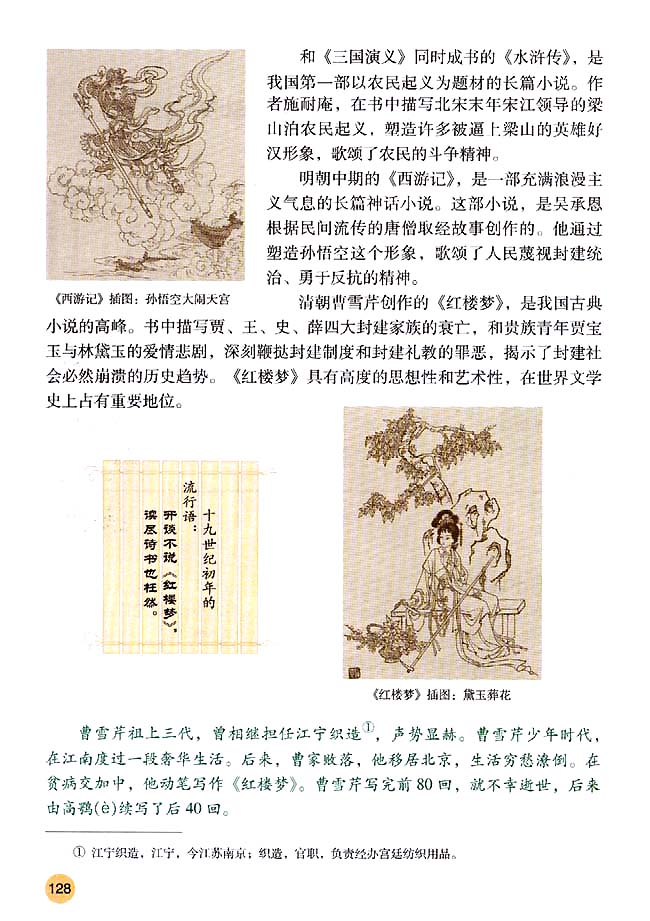 和《三国演义》同时成书的《水浒传》，是
我国第一部以农民起义为题材的长篇小说。作
者施耐庵，在书中描写北宋末年宋江领导的梁
山泊农民起义，塑造许多被逼上梁山的英雄好
汉形象，歌颂了农民的斗争精神。
明朝中期的《西游记》，是一部充满浪漫主
义气息的长篇神话小说。这部小说，是吴承恩
根据民间流传的唐僧取经故事创作的。他通过
塑造孙悟空这个形象，歌颂了人民蔑视封建统
治、勇于反抗的精神。
《西游记》插图：孙悟空大闹天宫
清朝曹雪芹创作的《红楼梦》，是我国古典
小说的高峰。书中描写贾、王、史、薛四大封建家族的衰亡，和贵族青年贾宝
玉与林黛玉的爱情悲剧，深刻鞭挞封建制度和封建礼教的罪恶，揭示了封建社
会必然崩溃的历史趋势。《红楼梦》具有高度的思想性和艺术性，在世界文学
史上占有重要地位。
十九世纪初年的
流行语：
开谈不说《红楼梦》，
读尽诗书也枉然。
《红楼梦》插图：黛玉葬花
曹雪芹祖上三代，曾相继担任江宁织造①，声势显赫。曹雪芹少年时代，
在江南度过一段奢华生活。后来，曹家败落，他移居北京，生活穷愁潦倒。在
贫病交加中，他动笔写作《红楼梦》。曹雪芹写完前80回，就不幸逝世，后来
由高鹗(è)续写了后40回。
① 江宁织造，江宁，今江苏南京；织造，官职，负责经办宫廷纺织用品。
128